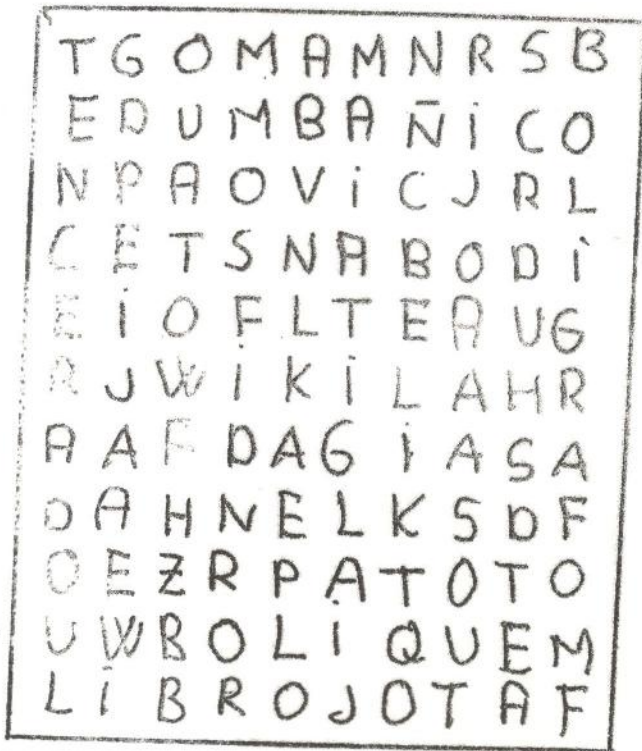 T G O M A M N R S B
E D U M B A Ñ i C O
N P A O V i C J R L
C E T S N A B O D i
E i O F L T E A U G
R J W i K i L A H R
A A F D A G i A S A
D A H N E L K S D F
O E Z R P A T O T O
U W B O L i Q U E M
L i B R O J O T A F